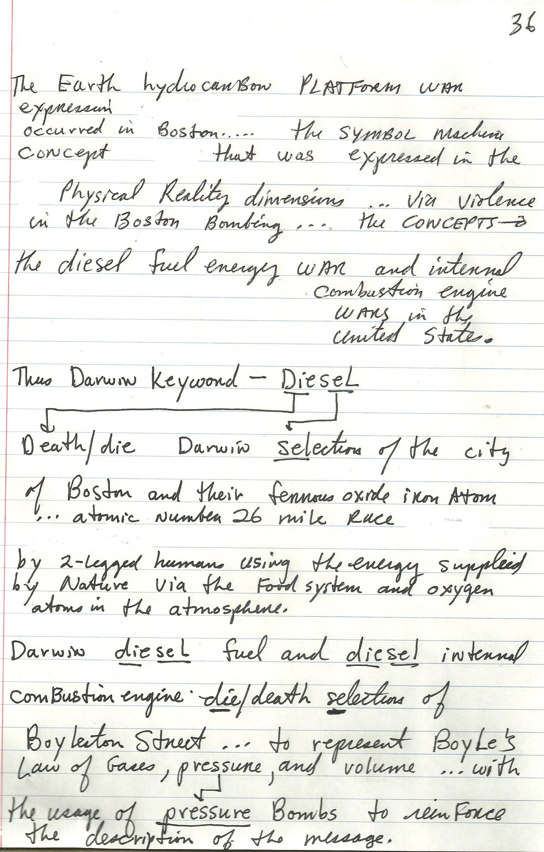 36
The Earth hydrocarbon PLATFORM WAR
expression
occurred in Boston..... the SYMBOL machine
concept that was expressed in the
Physical Reality dimensions ... via violence
in the Boston Bombing ... the CONCEPTS→
the diesel fuel energy WAR and internal
combustion engine
WARS in the
United States.
Thus Darwin Keyword — DieseL
Death/die Darwin selection of the city
of Boston and their ferrous oxide iron Atom
... atomic number 26 mile Race
by 2-legged humans using the energy supplied
by Nature via the Food system and oxygen
atoms in the atmosphere.
Darwin diesel fuel and diesel internal
combustion engine: die/death selection of
Boyleston Street ... to represent BoyLe's
Law of Gases, pressure, and volume ... with
the usage of pressure Bombs to reinForce
the description of the message.